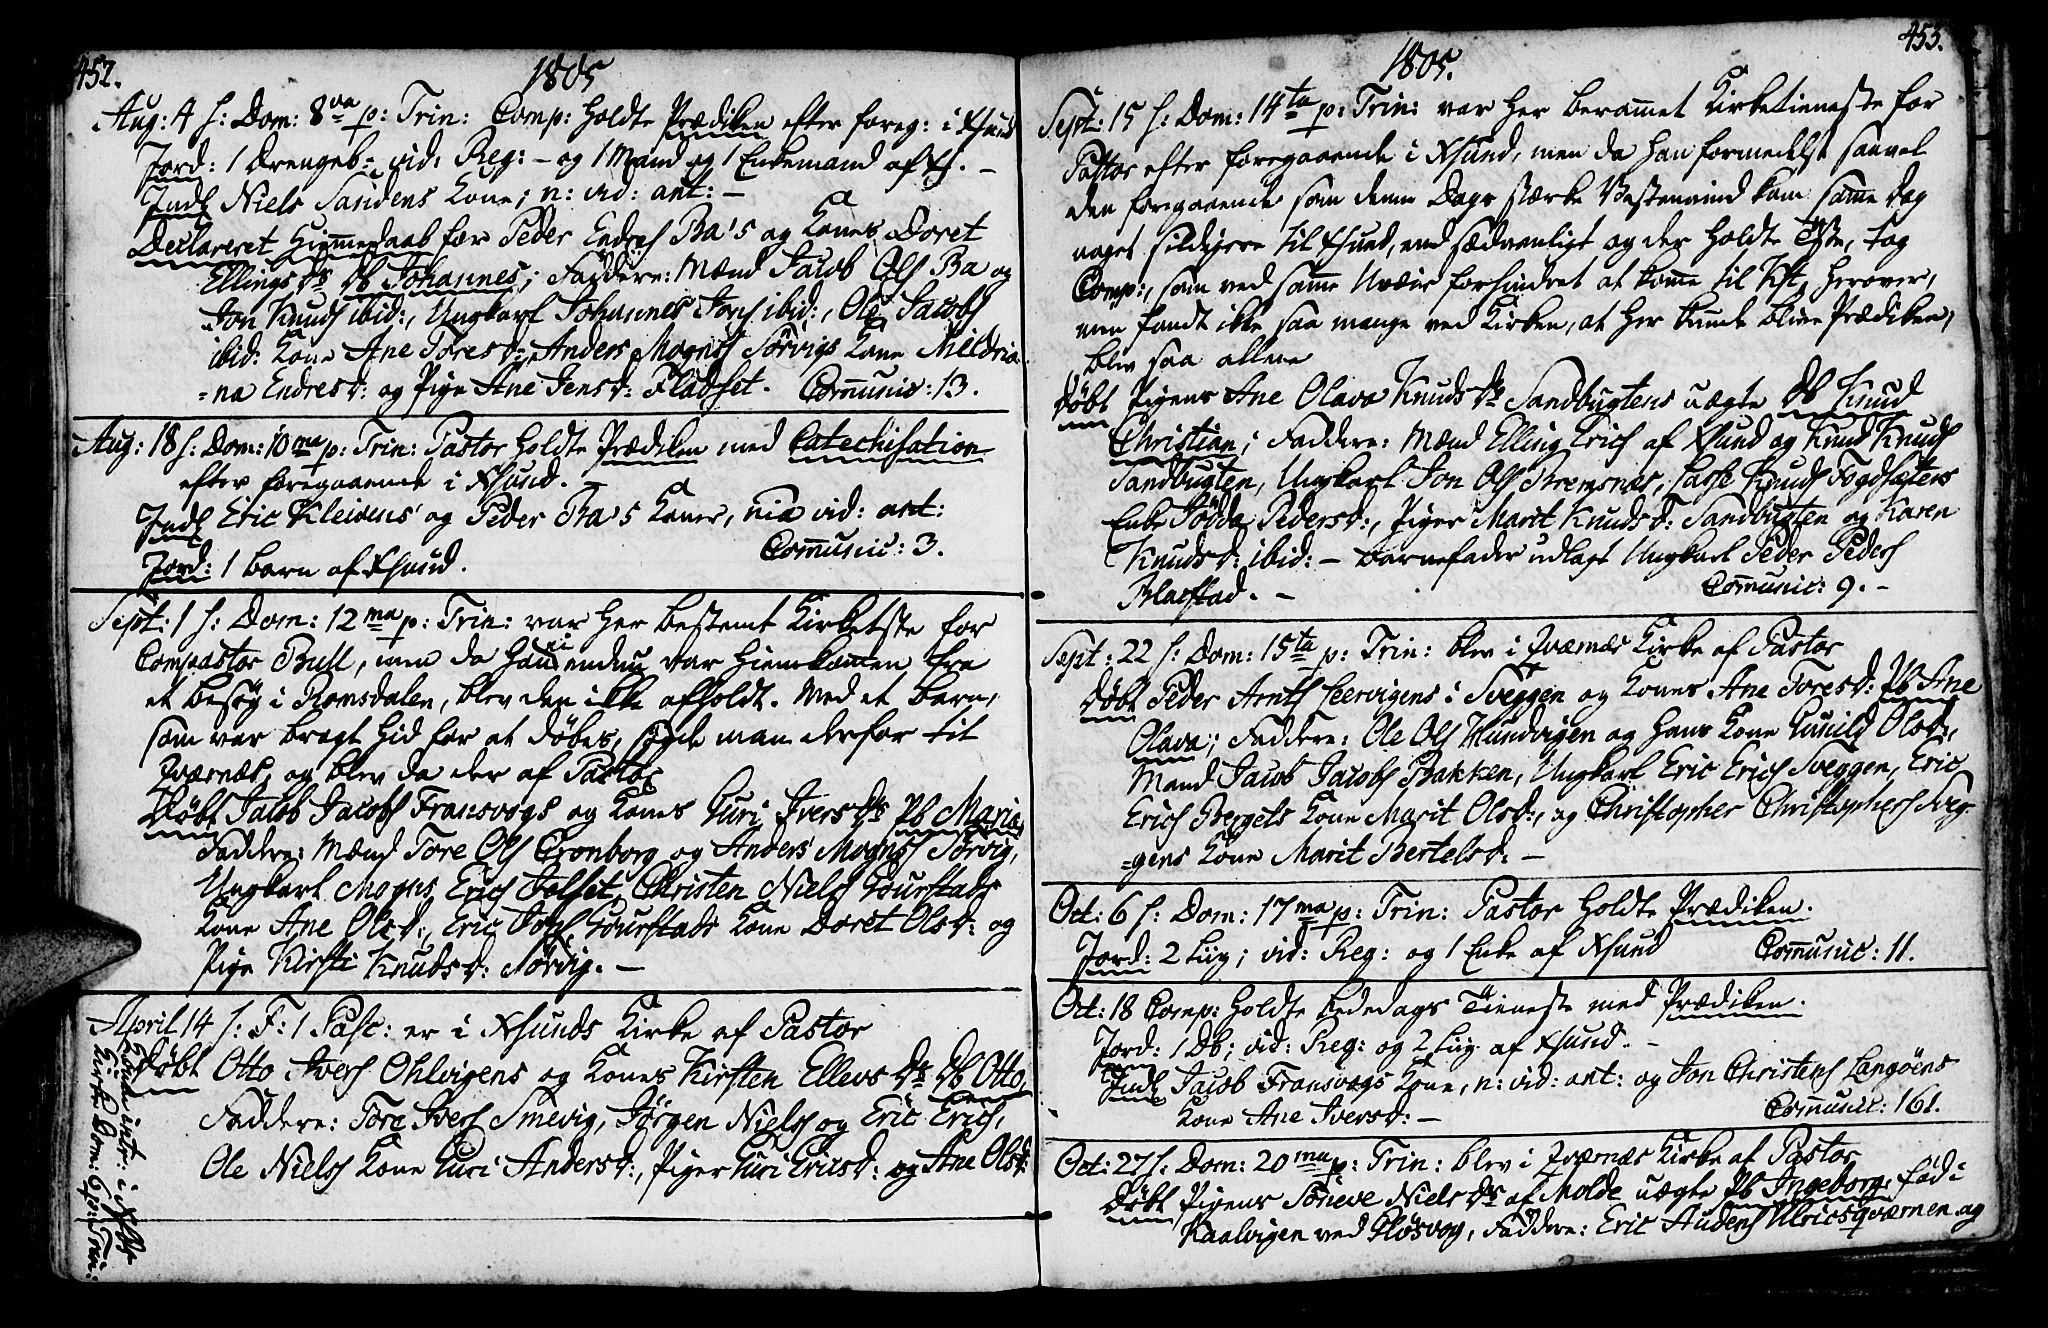 452.
1805
Aug: 4 s: Dom: 8va p: Trin: Comp: holdte Prædiken efter foreg: i Xsund
Jord: 1 Drengeb: vid: Reg: - og 1 Mand og 1 Enkemand af
Indl Niels Sandens Kone; n: vid: ant: -
Declareret Hiemmedaab for Peder Endres Ba's og Kones Doret
Ellingsdr Db Johannes; Faddere: Mænd Jacob Ols Ba og
Jon Knuds ibid:, Ungkarl Johannes Jons ibid:, Ole Jacobs
ibid: Kone Ane Toresd:, Anders Mogns Sørvigs Kone Mildria
=na Endresd: og Pige Ane Jensd: Fladset. Communic: 13.
Aug: 18 s: Dom: 10ma p: Trin: Pastor holdte Prædiken med Catechisation
efter foregaaende i Xsund.
Indl Eric Kleivens og Peder Ba's Koner, nia vid: ant:
Jord: 1 Barn af Xsund. Communic: 3.
Sept: 1 s: Dom: 12ma p: Trin: var her bestemt Kirketste for
Compastor Bull, men da han ei endnu var hiemkommen fra
et besøg i Romsdalen, blev den ikke afholdt. Med et Barn,
som var bragt hid for at døbes, søgde man derfor til
Qværnæs, og blev da der af Pastor
Døbt Jacob Jacobs Fransvogs og Kones Guri Iversdr Pb Maria,
Faddere: Mænd Tore Ols Cronborg og Anders Mogns Sørvig,
Ungkarl Mogns Erics Folset, Christen Niels Gourstads
Kone Ane Olsd:, Eric Jons Gourstads Kone Doret Olsd: og
Pige Kirsti Knudsd: Sørvig. -
April 14 s: F: 1 Pasc: er i Xsunds Kirke af Pastor
Døbt Otto Ivers Ohlvigens og Kones Kirsten Ellevsdr Db Otto,
Faddere: Tore Ivers Smevig, Jørgen Niels og Eric Erics,
Ole Niels Kone Guri Andersd:, Piger Guri Ericsd: og Ane Olsd:
Kirke Dom: 6 p: Trin:
453.
1805.
Sept: 15 s: Dom: 14ta p: Trin: var her berammet Kirketieneste for
Pastor efter foregaaende i Xsund, men da han formedelst saavel
den foregaaende som denne Dags stærke Vestenvind kom samme Dag
noget sildigere til Xsund, end sædvanligt og der holdte Tste, tog
Comp:, som ved samme Uveir forhindret at komme til Kst, herover,
men fandt ikke saa mange ved Kirken, at her kunde blive Prædiken,
blev saa allene
Døbt Pigens Ane Olava Knudsdr Sandbugtens uægte Db Knud
Christian; Faddere: Mænd Elling Erics af Xsund og Knud Knuds
Sandbugten, Ungkarl Jon Ols Bremsnæs, Lasse Knuds Fogdsæters
Enke Søgda Pedersd:, Piger Marit Knudsd: Sandbugten og Karen
Knudsd: ibid: - Barnefader udlagt Ungkarl Peder Peders
Blakstad. - Communic: 9. -
Sept: 22 s: Dom: 15ta p: Trin: blev i Qværnæs Kirke af Pastor
Døbt Peder Arnts Leervigens i Sveggen og Kones Ane Toresd: Pb Ane
Olava; Faddere: Ole Ols Hundvigen og hans Kone Gunild Olsd:,
Mænd Jacob Jacobs Bakken, Ungkarl Eric Erics Sveggen, Eric
Erics Bergets Kone Marit Olsd:, og Christopher Christophers Sveg
=gens Kone Marit Bertelsd: -
Oct: 6 s: Dom: 17ma p: Trin: Pastor holdte Prædiken.
Jord: 2 Liig; vid: Reg: og 1 Enke af Xsund Communic: 11.
Oct: 18 Comp: holdte Bededags Tieneste med Prædiken.
Jord: 1 Db; vid: Reg: og 2 Liig af Xsund. -
Indl Jacob Fransvogs Kone, n: vid: ant: og Jon Christens Langøens
Kone Ane Iversd: - Communic: 161.
Oct: 27 s: Dom: 20ma p: Trin: blev i Qværnæs Kirke af Pastor
Døbt Pigens Søneve Nielsdr af Molde uægte Pb Ingeborg, fød i
Kaalvigen ved Fløsvog, Faddere: Eric Audens Ulricsqværnen og